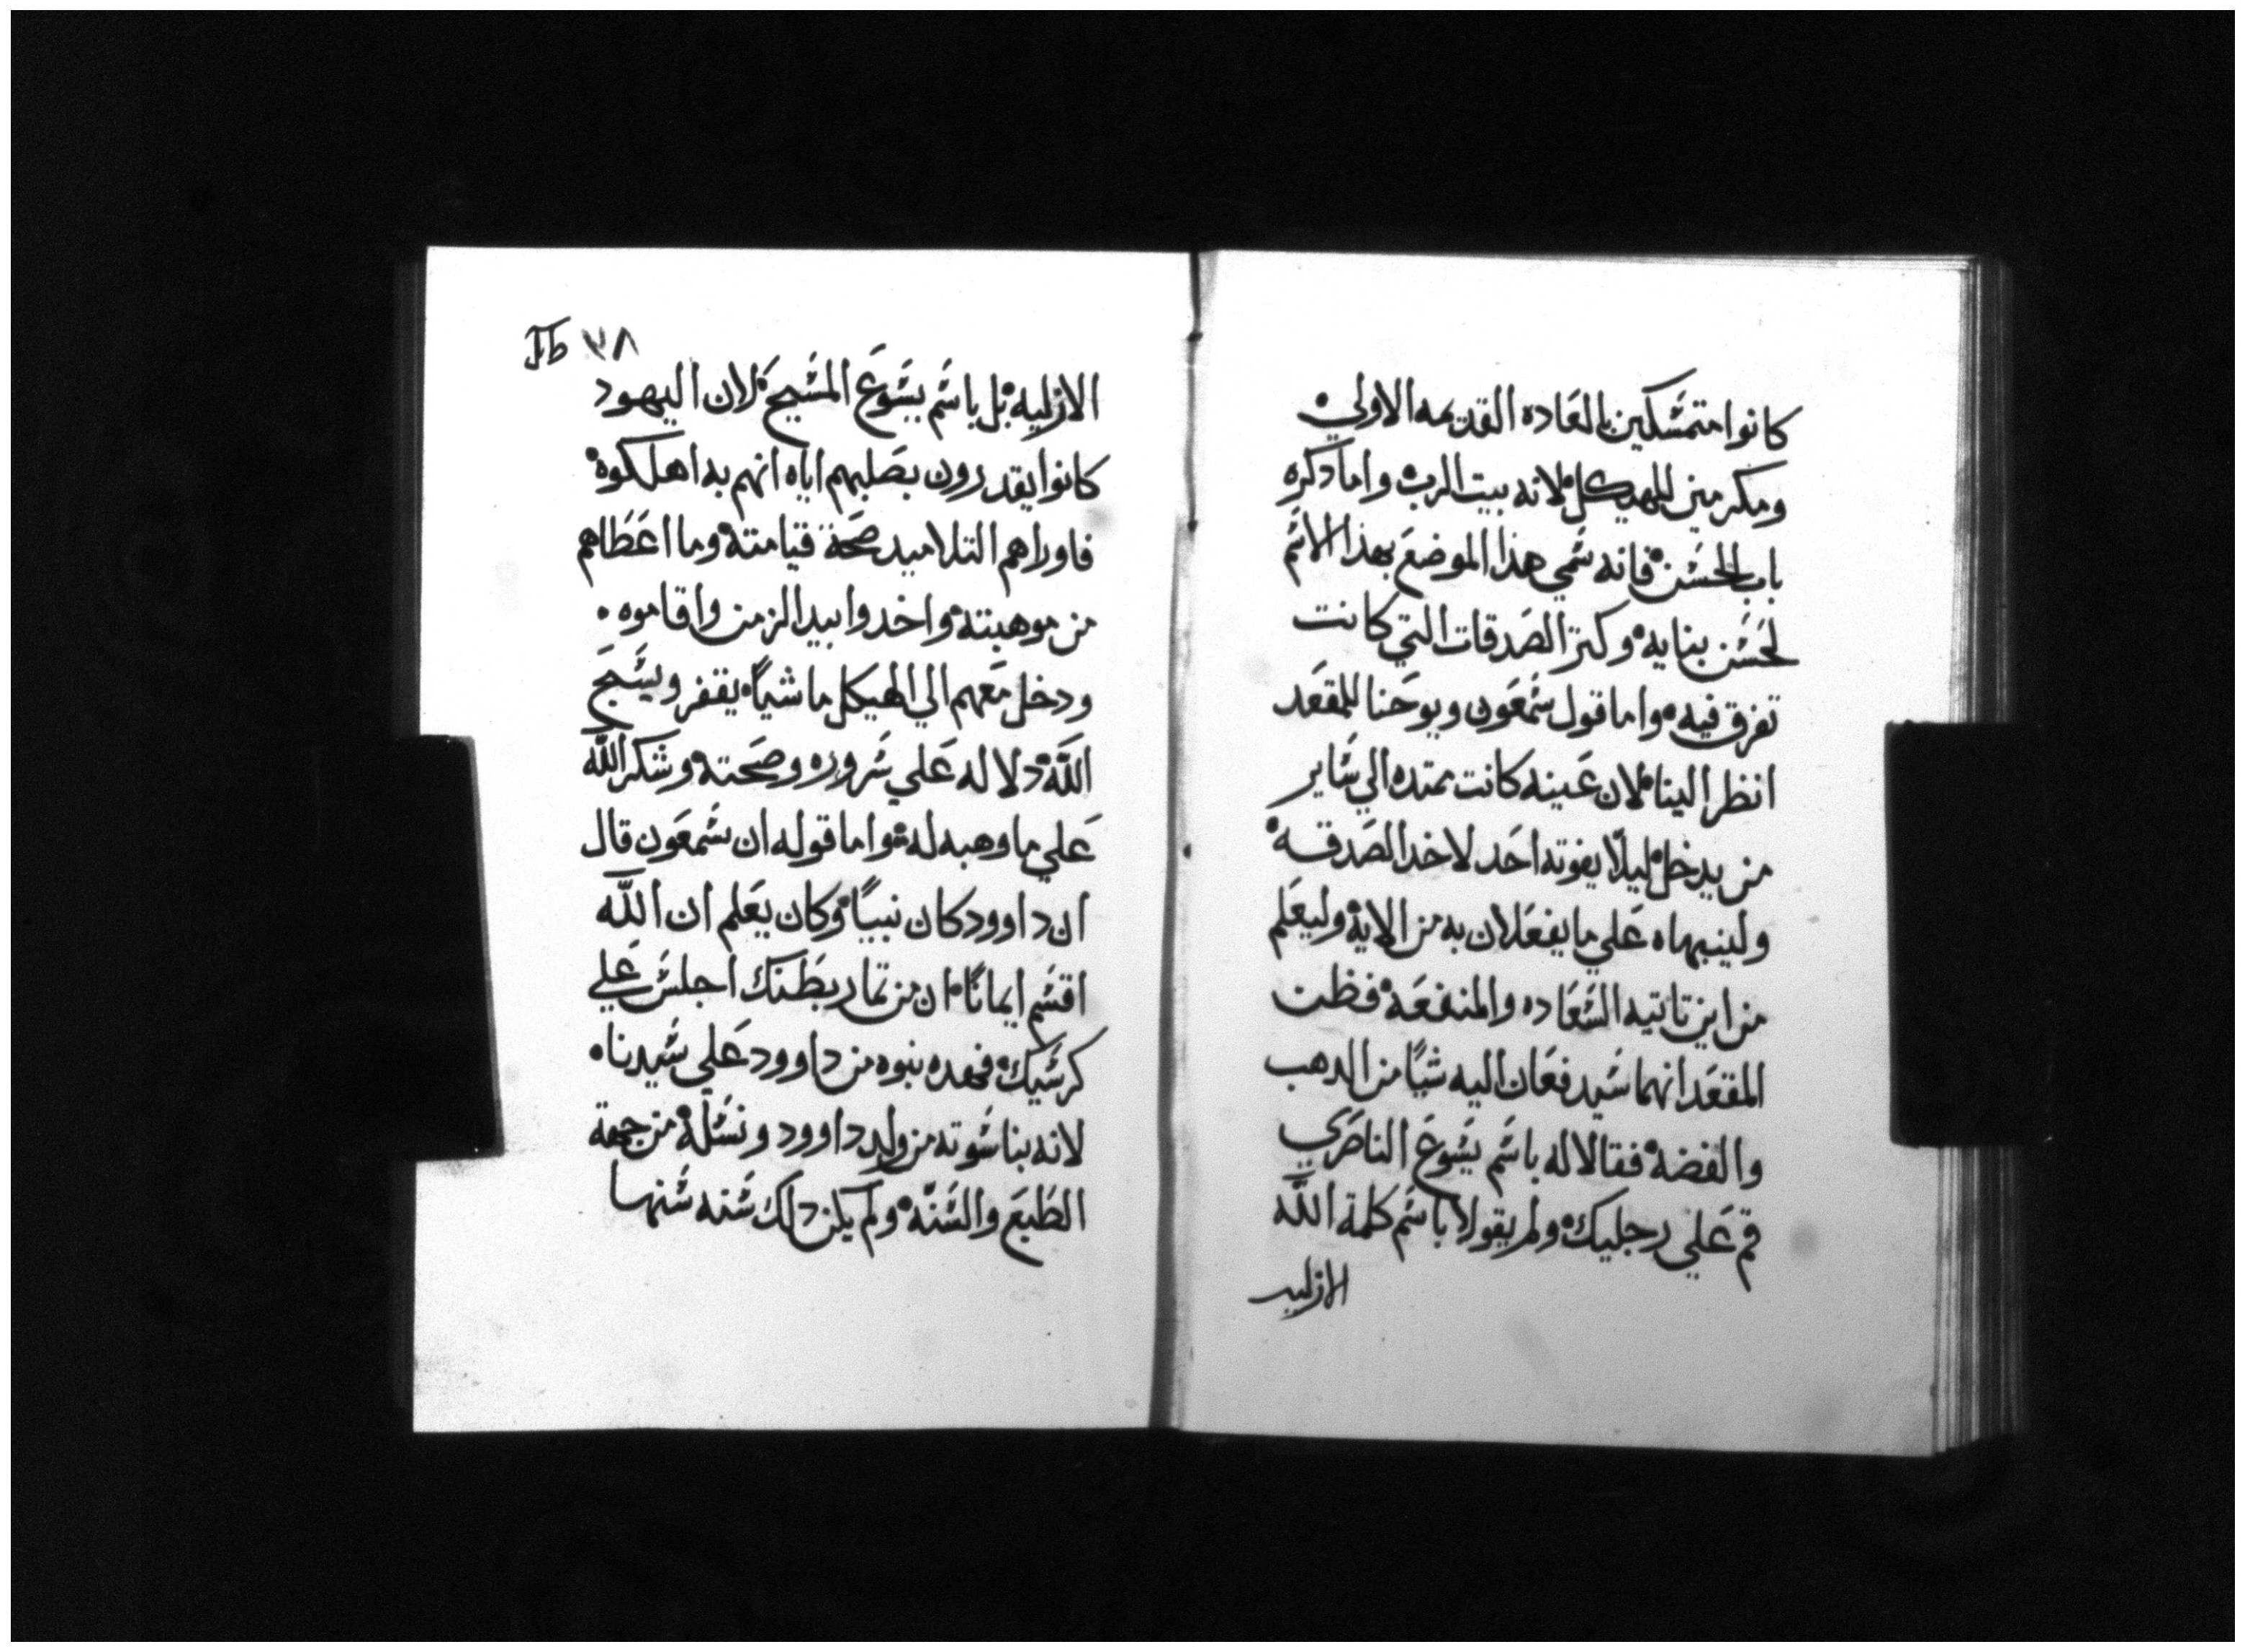 كانوا متمسكين بالعاده القديمه الاولي
ومكرمين للهيكل لانه بيت الرب واما دكره
باب الحسن فانه سمي هذا الموضع بهذا الاسم
لحسن بنايه وكتر الصدقات التي كانت
تفرق فيه واما قول سمعون ويوحنا للمقعد
انظر الينا لان عينه كانت ممتده الي ساير
من يدخل ليلا يفوته احد لاخد الصدقه
ولينبهاه علي ما يفعلان به من الايه وليعلم
من اين تاتيه السعاده والمنفعه فظن
المقعد انهما سيدفعان اليه شيا من الدهب
والفضه فقالا له باسم يسوع الناصري
قم علي رجليك ولم يقولا باسم كلمة الله
الازليه
٣٨ Ib
الازليه بل باسم يسوع المسيح لان اليهود
كانوا يقدرون بصلبهم اياه انهم به اهلكوه
فاوراهم التلاميد صحة قيامته وما اعطاهم
من موهبته واخدوا بيد الزمن واقاموه
ودخل معهم الي الهيكل ماشيا يقفر ويسبح
الله دلاله علي سروره وصحته وشكر الله
علي ما وهبه له واما قوله ان سمعون قال
ان داوود كان نبيا وكان يعلم ان الله
اقسم ايمانا ان من تمار بطنك اجلس علي
كرسيك فهده نبوه من داوود علي سيدناه
لانه بناسوته من ولد داوود ونسله من جهة
الطبع والسنه ولم يكن دلك سنه سنها